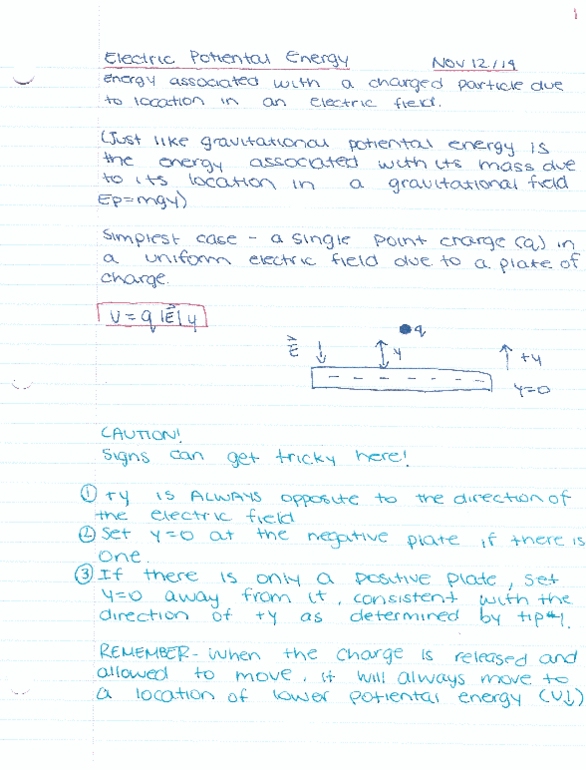 1
Electric Potiental Energy Nov 12/19
Energy associated with a charged particle due
to location in an electric field.
(Just like gravitational potiental energy is
the energy associated with its mass due
to its location in a gravitational field
Ep=mgy)
Simplest case - a single point charge (q) in
a uniform electric field due to a plate of
charge.
U = q|E⃗|y
q
E⃗ y +y
- - - - - -
y=0
CAUTION!
Signs can get tricky here!
① +y is ALWAYS opposite to the direction of
the electric field
② Set y=0 at the negative plate if there is
one.
③ If there is only a positive plate, set
y=0 away from it, consistent with the
direction of +y as determined by tip#1.
REMEMBER- When the charge is released and
allowed to move, it will always move to
a location of lower potiental energy (U↓)